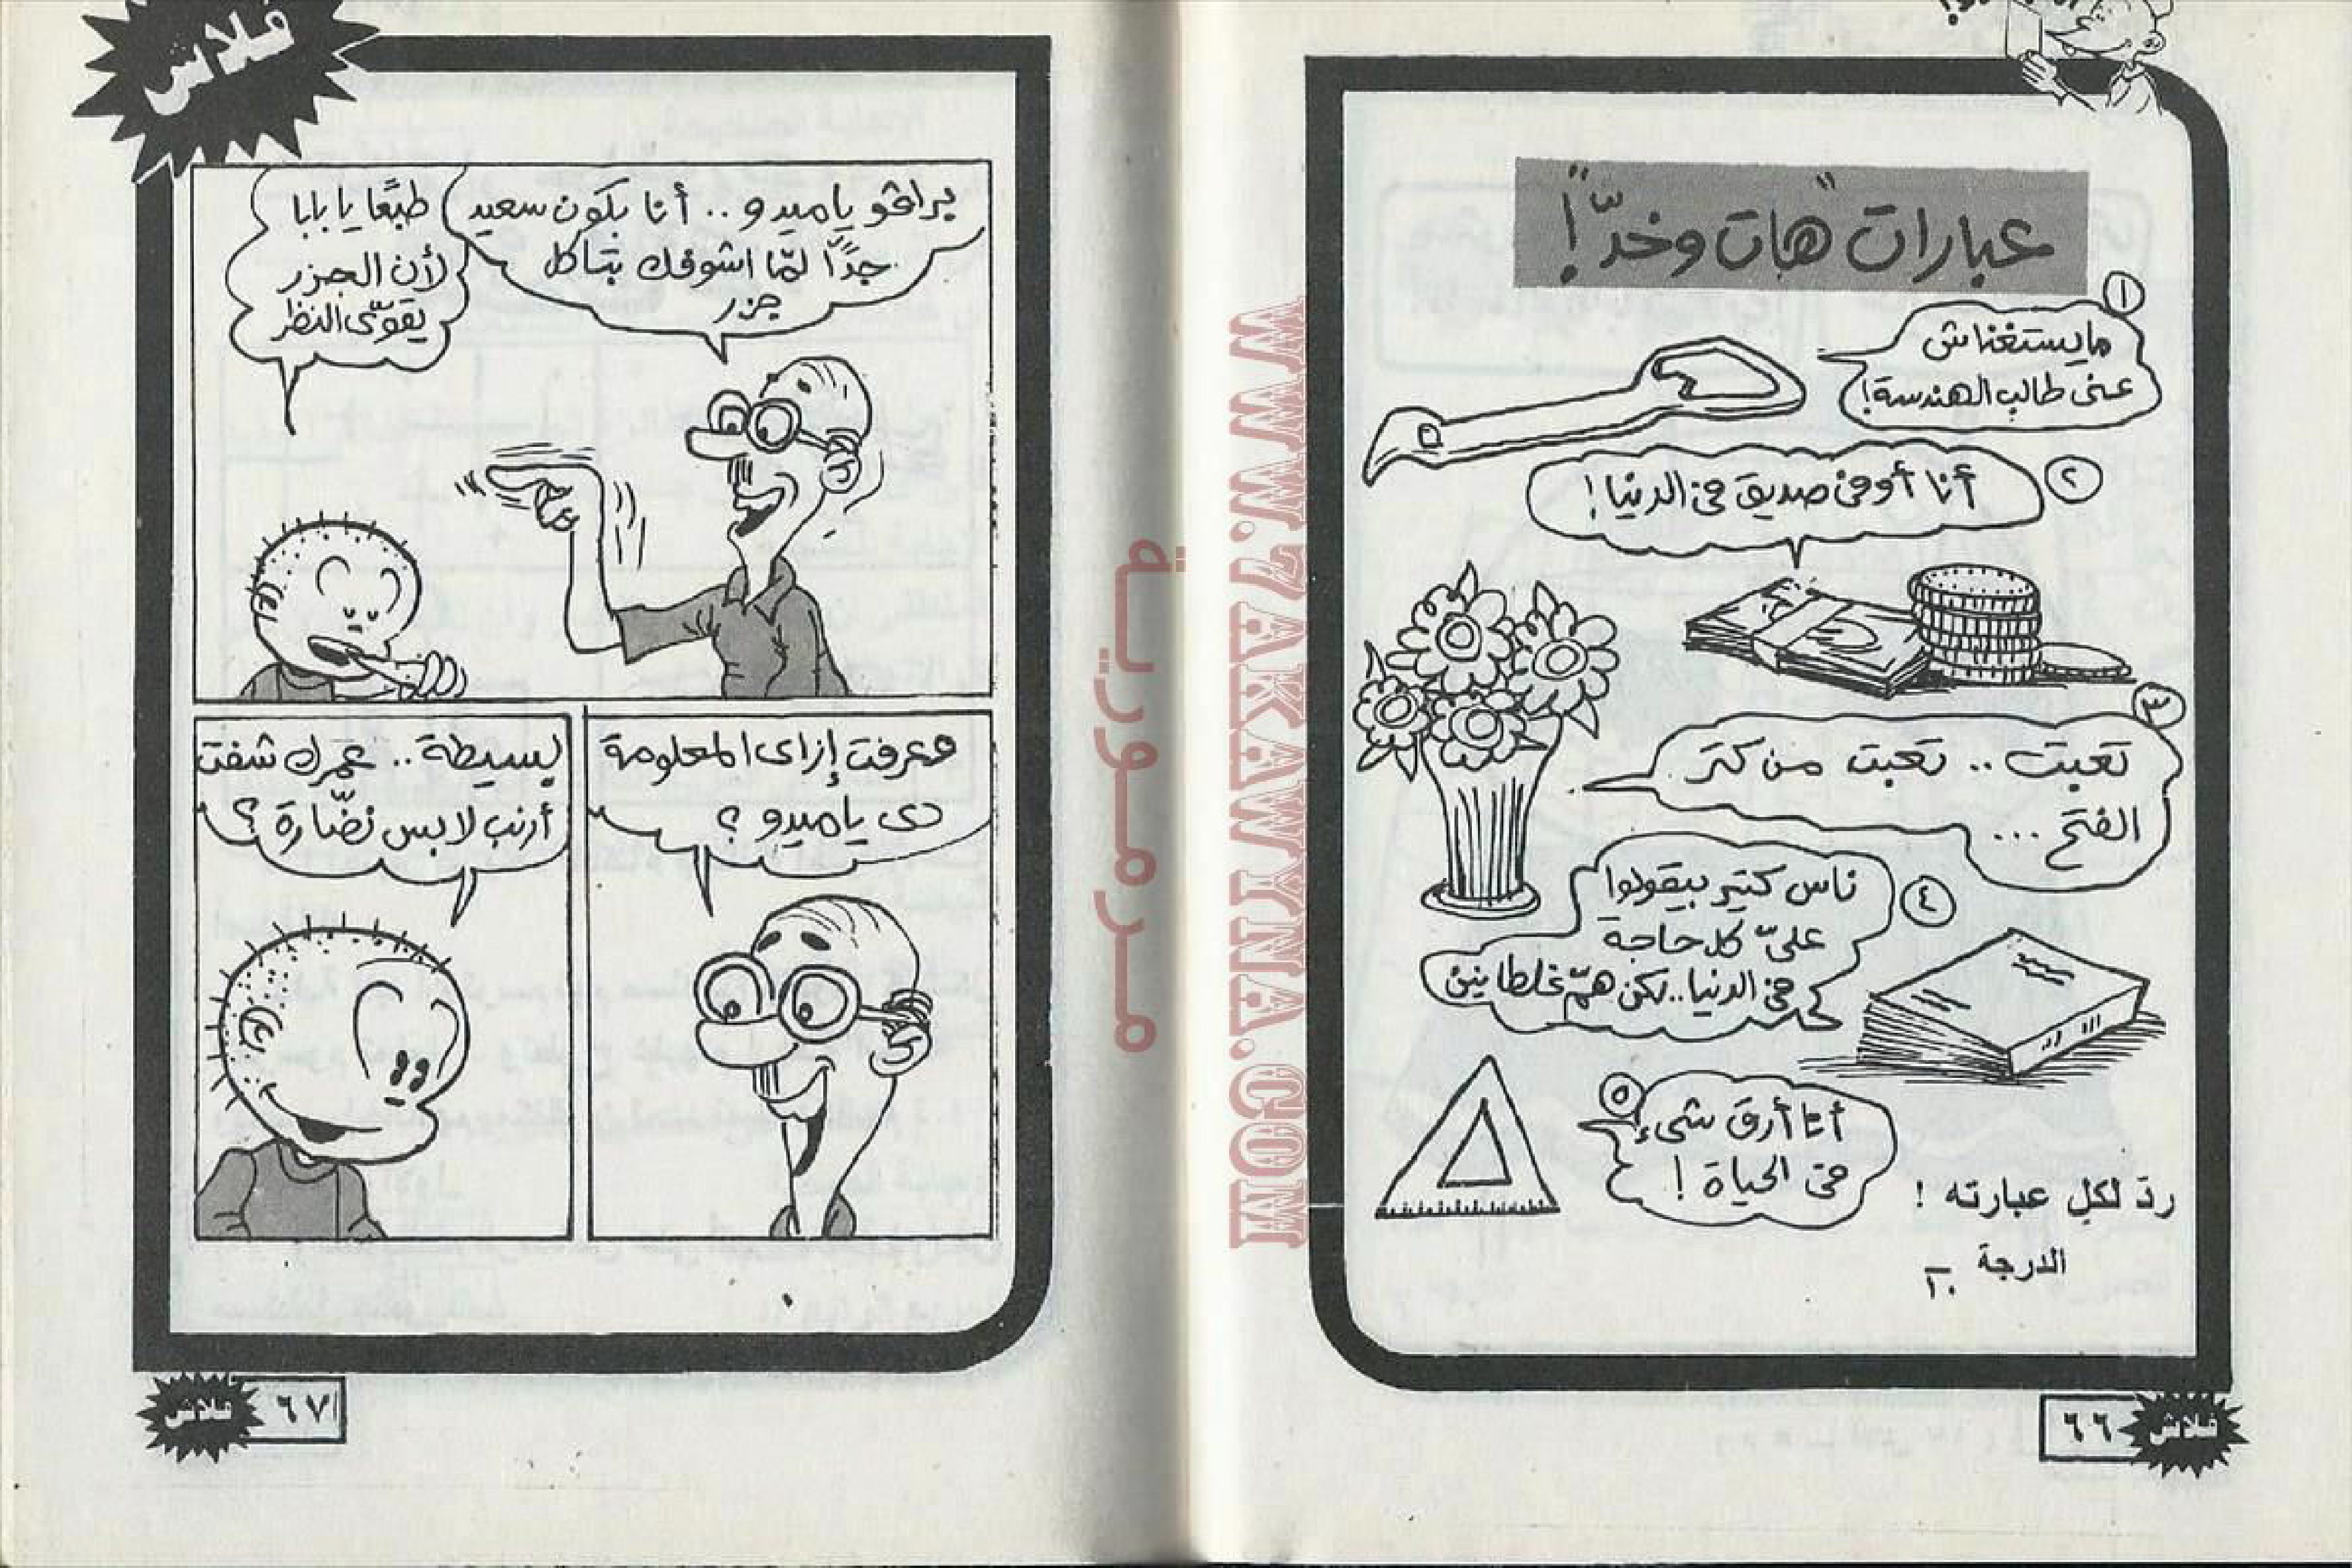 عبارات "هات وخدّ"!
١
مايستغناش
عنى طالب الهندسة!
٢
أنا أوفى صديق فى الدنيا!
٣
تعبت .. تعبت من كتر
الفتح ...
٤
ناس كتير بيقولوا
علىّ كل حاجة
فى الدنيا.. لكن همّ غلطانين
٥
أنا أرق شىء
فى الحياة!
ردّ لكل عبارته !
الدرجة
١٠
فلاش
٦٦
فلاش
براڤو ياميدو .. أنا بكون سعيد
جدًّا لمّا اشوفك بتاكل
جزر
طبعًا يا بابا
لأن الجزر
يقوّى النظر
وعرفت إزاى المعلومة
دى ياميدو ؟
بسيطة .. عمرك شفت
أرنب لابس نضّارة ؟
فلاش
٦٧
مرمورية
WWW.7AKAWYNA.COM